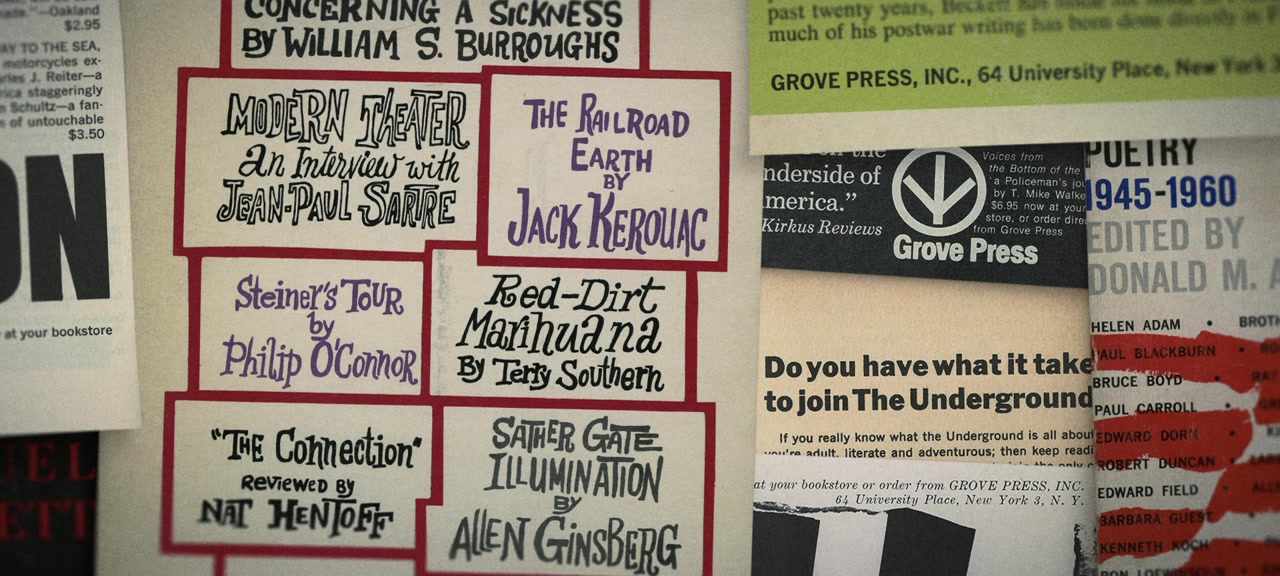 —Oakland
$2.95
AY TO THE SEA,
motorcycles ex-
rles J. Reiter—a
rica staggeringly
Schultz—a fan-
s of untouchable
$3.50
ON
at your bookstore
UEL
ETT
CONCERNING A SICKNESS
BY WILLIAM S. BURROUGHS
MODERN THEATER
an Interview with
JEAN-PAUL SARTRE
THE RAILROAD
EARTH
BY
JACK KEROUAC
Steiner's TOUR
by
Philip O'Connor
Red-Dirt
Marihuana
By Terry Southern
"THE Connection"
REVIEWED BY
NAT HENTOFF
SATHER GATE
ILLUMINATION
BY
ALLEN GINSBERG
past twenty years, Beckett has made his
much of his postwar writing has been done directly in F
GROVE PRESS, INC., 64 University Place, New York 3
on the
nderside of
merica.”
Kirkus Reviews
Grove Press
Voices from
the Bottom of the
a Policeman's jou
by T. Mike Walke
$6.95 now at your
store, or order dire
from Grove Press
Do you have what it take
to join The Underground
If you really know what the Underground is all about
you're adult, literate and adventurous; then keep readi
at your bookstore or order from GROVE PRESS, INC.
64 University Place, New York 3, N. Y.
POETRY
1945-1960
EDITED BY
DONALD M. A
HELEN ADAM • BROTH
PAUL BLACKBURN •
BRUCE BOYD •
PAUL CARROLL •
EDWARD DORN •
ROBERT DUNCAN •
EDWARD FIELD •
BARBARA GUEST •
KENNETH KOCH •
RON LOEWINSOHN